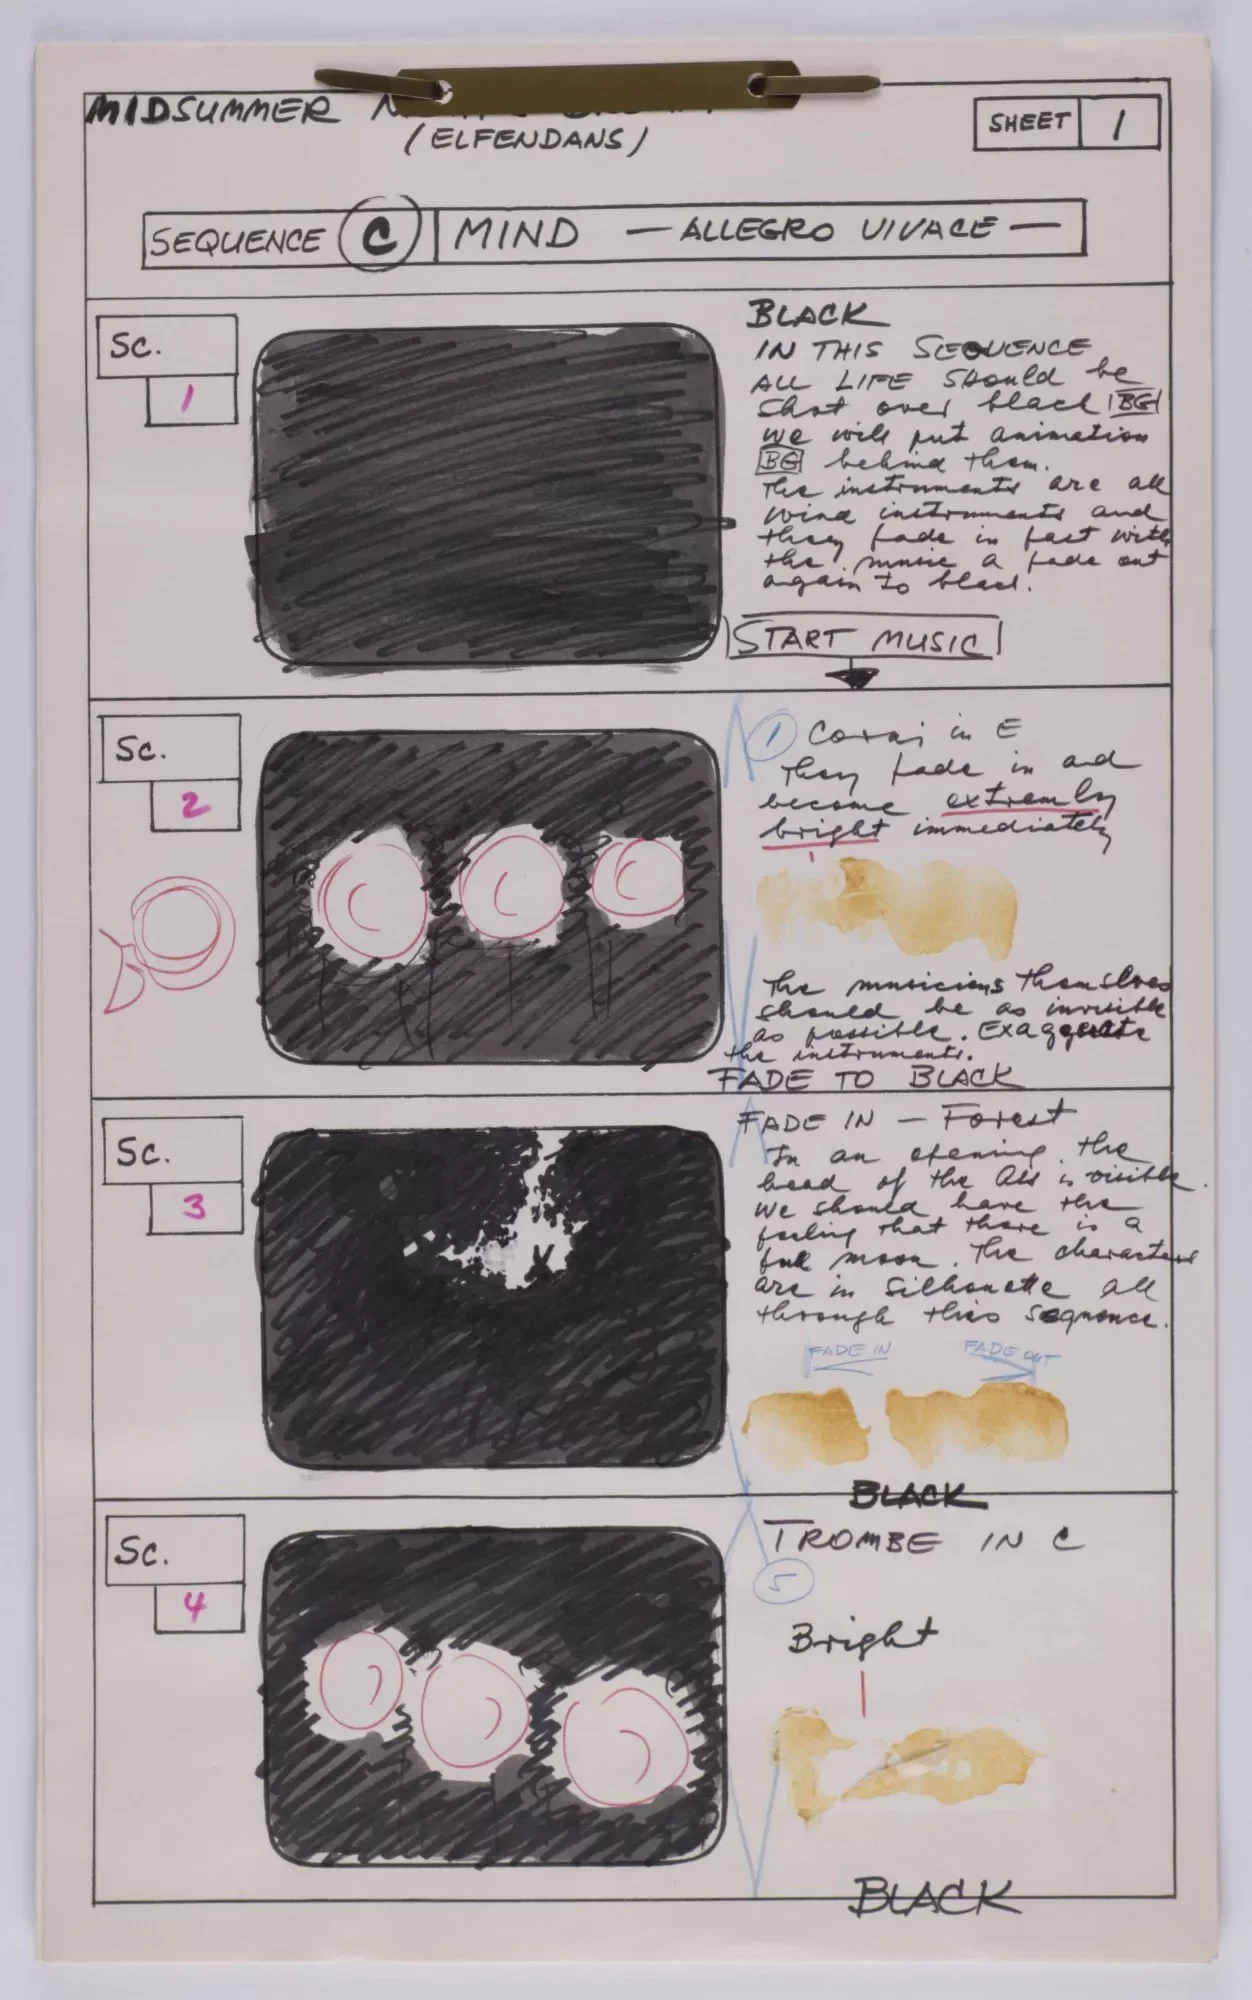 MIDSUMMER
(ELFENDANS)
SHEET 1
SEQUENCE C MIND — ALLEGRO VIVACE —
Sc.
1
BLACK
IN THIS SEQUENCE
ALL LIFE should be
shot over black BG
we will put animation
BG behind them.
The instruments are all
wind instruments and
they fade in fast with
the music a fade out
again to black.
START MUSIC
Sc.
2
1 Corni in E
They fade in and
become extremly
bright immediately
The musicians themselves
should be as invisible
as possible. Exaggerate
the instruments.
FADE TO BLACK
Sc.
3
FADE IN — Forest
In an opening the
head of the Ass is visible.
We should have the
feeling that there is a
full moon. The characters
are in Silhouette all
through this sequence.
FADE IN FADE OUT
BLACK
Sc.
4
TROMBE IN C
5
Bright
BLACK